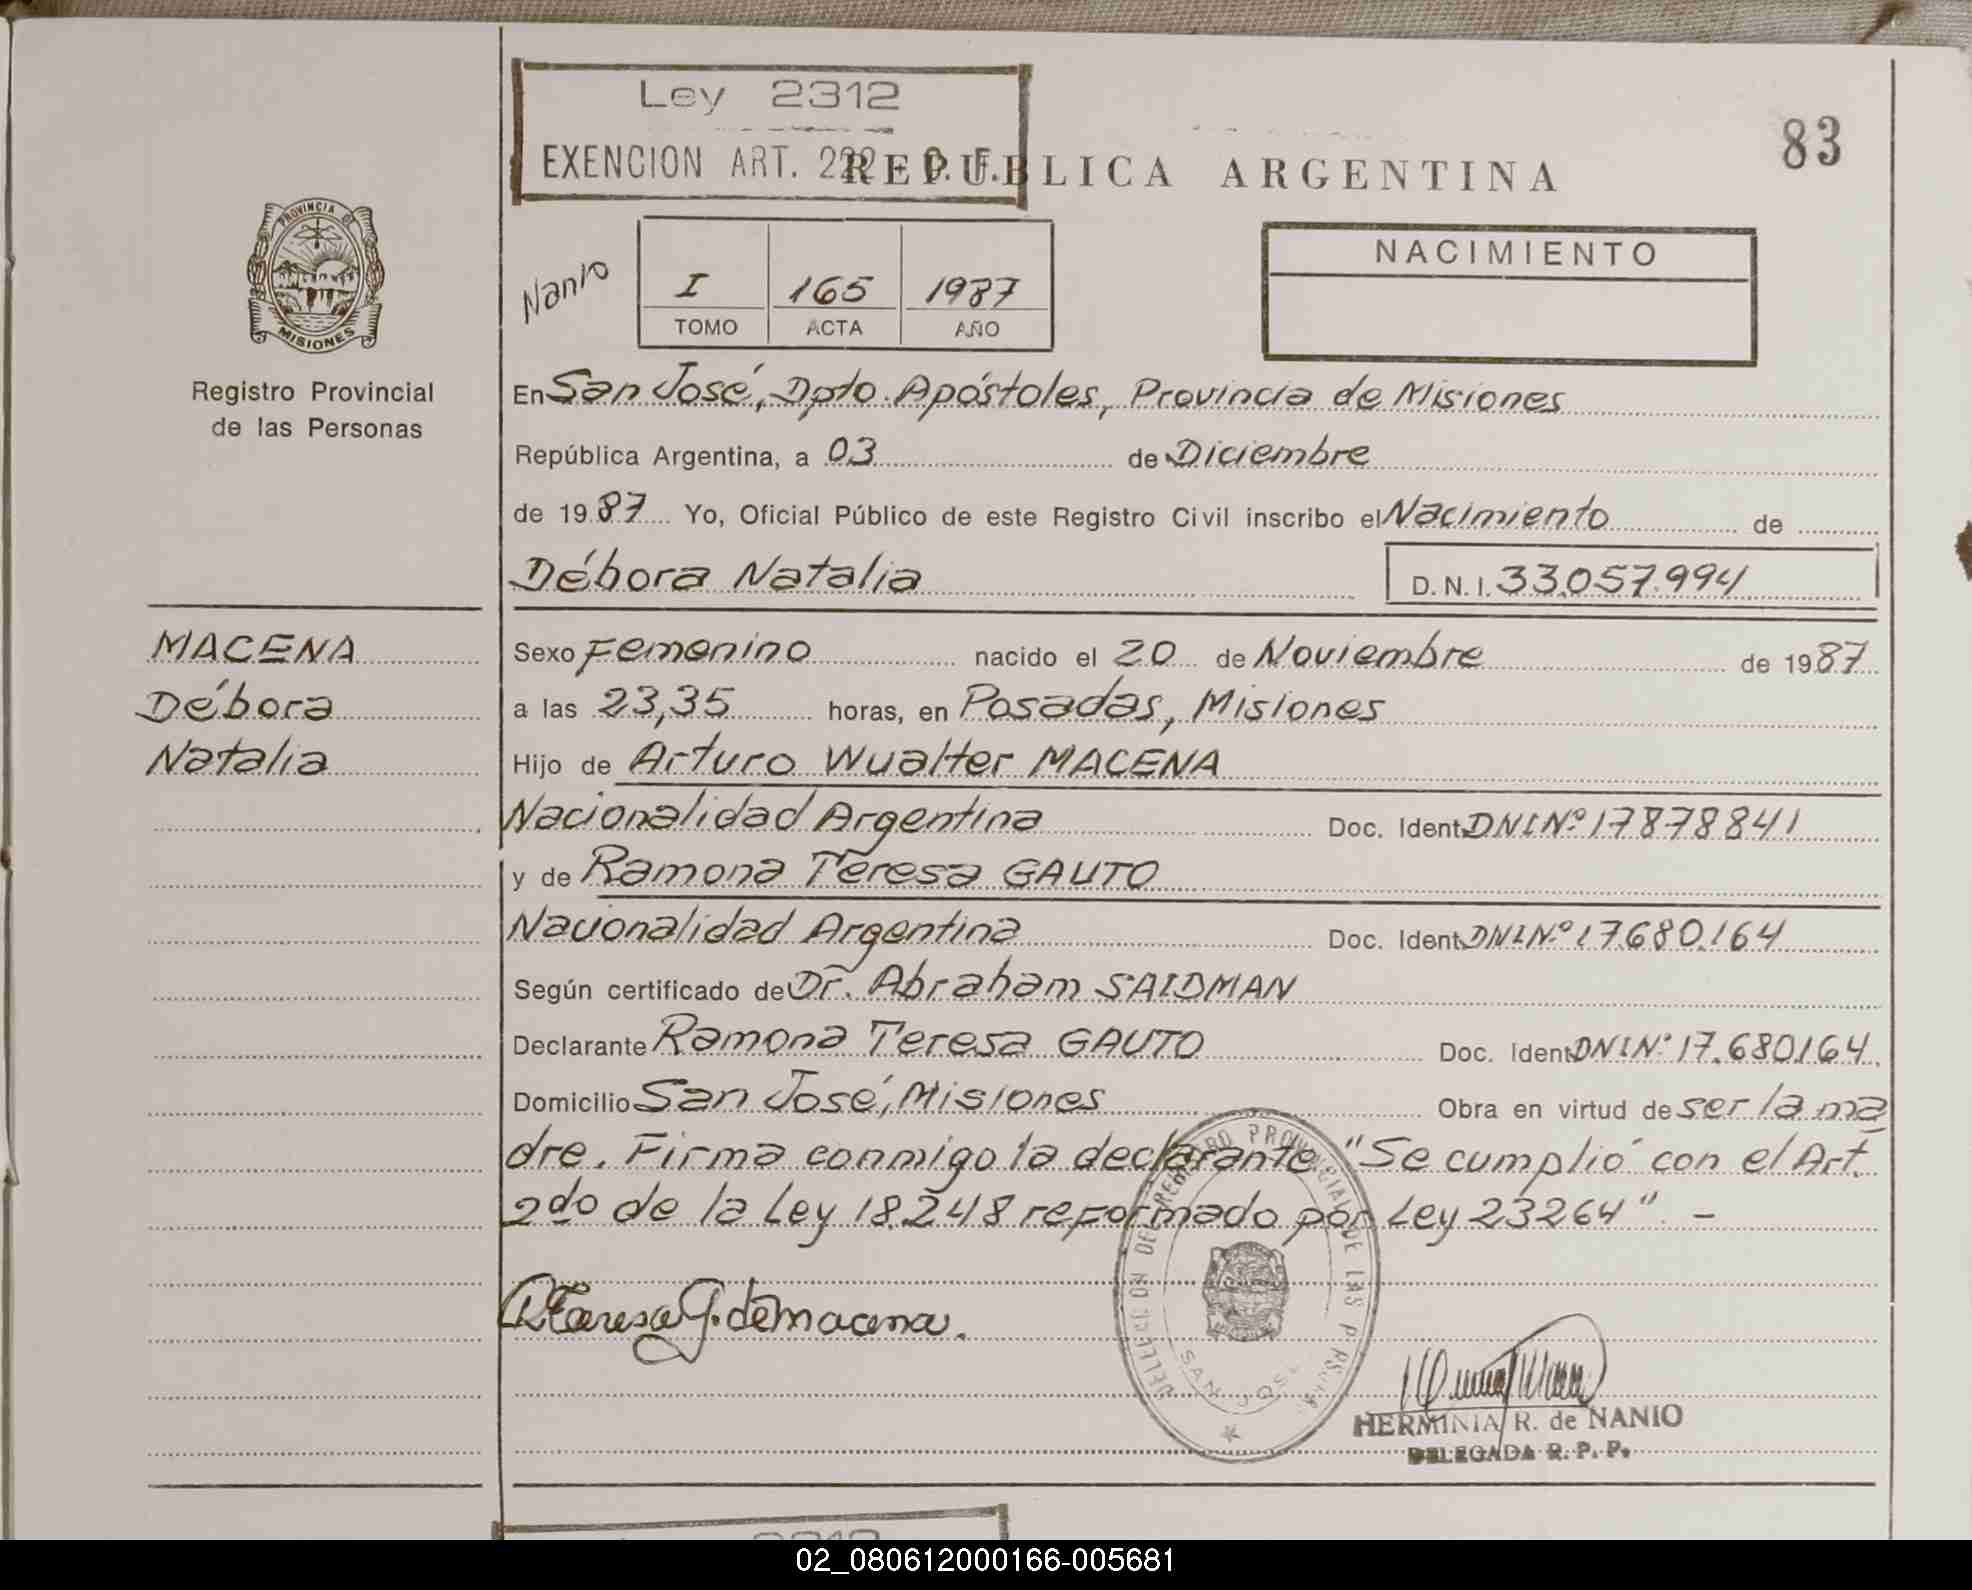 Ley 2312
EXENCION ART. 222 - C. F.
REPUBLICA ARGENTINA
83
PROVINCIA DE
MISIONES
Registro Provincial
de las Personas
Nanio
I 165 1987
TOMO ACTA AÑO
NACIMIENTO
En San José, Dpto. Apóstoles, Provincia de Misiones
República Argentina, a 03 de Diciembre
de 1987 Yo, Oficial Público de este Registro Civil inscribo el Nacimiento de
Débora Natalia D. N. I. 33.057.994
MACENA
Débora
Natalia
Sexo Femenino nacido el 20 de Noviembre de 1987
a las 23,35 horas, en Posadas, Misiones
Hijo de Arturo Wualter MACENA
Nacionalidad Argentina Doc. Ident. DNI Nº 17878841
y de Ramona Teresa GAUTO
Nacionalidad Argentina Doc. Ident. DNI Nº 17.680.164
Según certificado de Dr. Abraham SAIDMAN
Declarante Ramona Teresa GAUTO Doc. Ident. DNI Nº 17.680.164
Domicilio San José, Misiones Obra en virtud de ser la ma
dre. Firma conmigo la declarante "Se cumplió con el Art.
2do de la Ley 18.248 reformado por Ley 23264". -
DELEGACION DEL REGISTRO PROVINCIAL DE LAS PERSONAS
SAN JOSE
R Teresa G. de Macena.
HERMINIA R. de NANIO
DELEGADA R. P. P.
2312
02_080612000166-005681